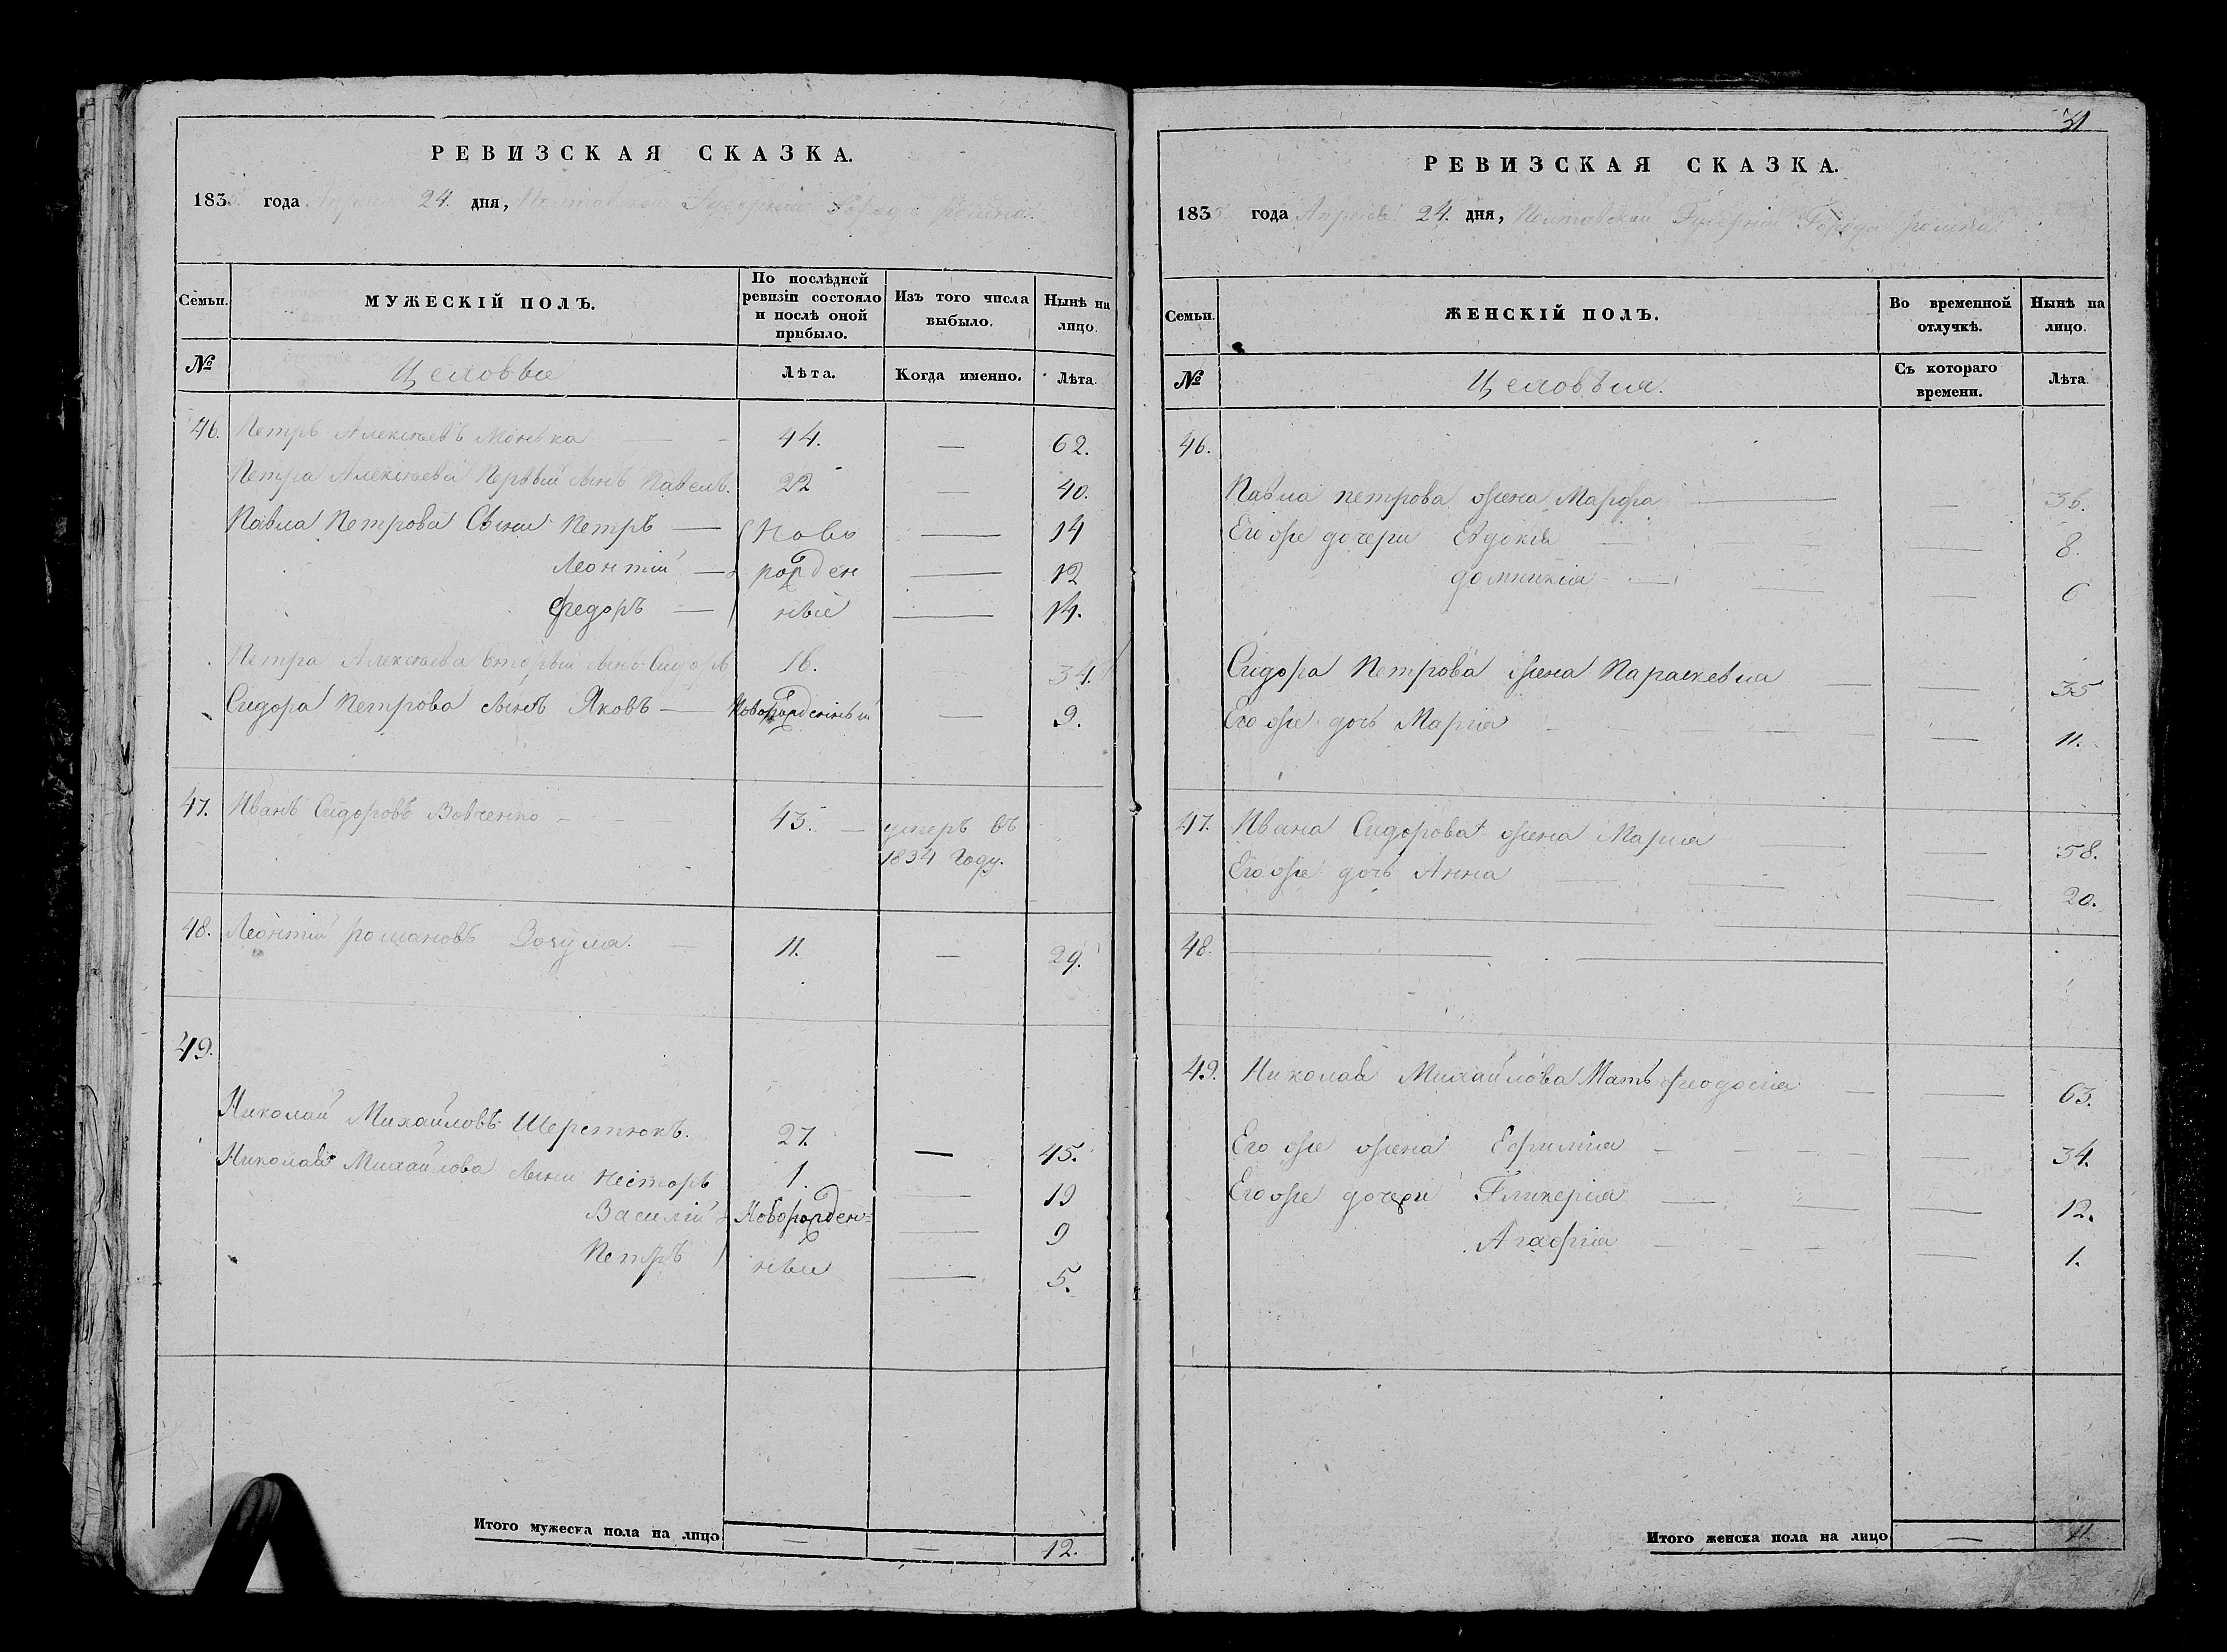 РЕВИЗСКАЯ СКАЗКА.
183 года 24. дня, Города ромна.
Семьи.
МУЖЕСКІЙ ПОЛЪ.
По послѣдней ревизіи состояло и послѣ оной прибыло.
Изъ того числа выбыло.
Нынѣ на лицо.
№
Лѣта.
Когда именно.
Лѣта.
46. Петръ Алексѣевъ Монька 44. — 62.
Петра Алексѣева Первый сынъ Павелъ. 22 — 40.
Павла Петрова Сыни Петръ — Ново — 14
Леонтій — рожден — 12
Федоръ — ніе — 14.
Петра Алексѣева вторый сынъ Сидоръ 16. 34.
Сидора Петрова сынъ Яковъ — Новорожденный — 9.
47. Иванъ Сидоровъ Вовченко 43. — умеръ въ
1834 Году.
48. Леонтій романовъ 11. — 29.
49.
Николай Михайловъ Шерстюкъ. 27. — 45.
Николая Михайлова сыни Несторъ 1. — 19
Василій Новорожден= — 9
Петръ ные — 5.
Итого мужеска пола на лицо — — 12.
31
РЕВИЗСКАЯ СКАЗКА.
1835 года Апреля 24. дня, Полтавской Губерніи Города ромна.
Семьи.
ЖЕНСКІЙ ПОЛЪ.
Во временной отлучкѣ.
Нынѣ на лицо.
№
Съ котораго времени.
Лѣта.
46.
Павла петрова жена Марфа — 36.
Его же дочери Евдокія — 8.
домникія — 6
Сидора Петрова жена Параскевия — 35
Его же дочь Марія — 11.
47. Ивана Сидорова жена Мария — 58.
Его же дочь Анна — 20.
48.
49. Николая Михайлова Мать феодосія — 63.
Его же жена Ефимія — 34.
Его же дочери Гликерія — 12.
Агафія — 1.
Итого женска пола на лицо — 11.